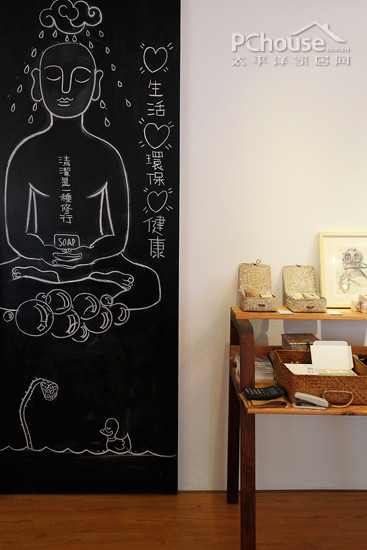 PChouse
太平洋家居网
♡生活♡環保♡健康
清潔是一種修行
SOAP